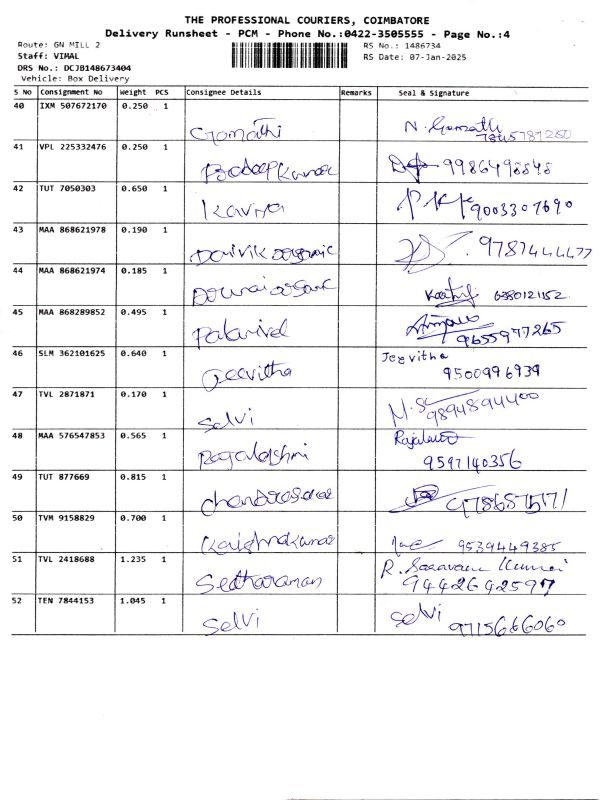 THE PROFESSIONAL COURIERS, COIMBATORE
Delivery Runsheet - PCM - Phone No.:0422-3505555 - Page No.:4
Route: GN MILL 2 RS No.: 1486734
Staff: VIMAL RS Date: 07-Jan-2025
DRS No.: DCJB148673404
Vehicle: Box Delivery
S No Consignment No Weight PCS Consignee Details Remarks Seal & Signature
40 IXM 507672170 0.250 1
Gomathi N. Gomathi
41 VPL 225332476 0.250 1
Pradeepkumar 9986498848
42 TUT 7050303 0.650 1
Kaviya 9003307690
43 MAA 868621978 0.190 1
9787444477
44 MAA 868621974 0.185 1
6380121152
45 MAA 868289852 0.495 1
Palanivel 9655977265
46 SLM 362101625 0.640 1 Jeevitha
Jeevitha 9500996939
47 TVL 2871871 0.170 1
Selvi 9894894400
48 MAA 576547853 0.565 1
Ragalakshmi 9597140356
49 TUT 877669 0.815 1
Chandrasekar
50 TVM 9158829 0.700 1
Krishnakumar 9539449385
51 TVL 2418688 1.235 1 R. Saravana Kumar
Seetharaman 9442642597
52 TEN 7844153 1.045 1 Selvi
Selvi 9715666060